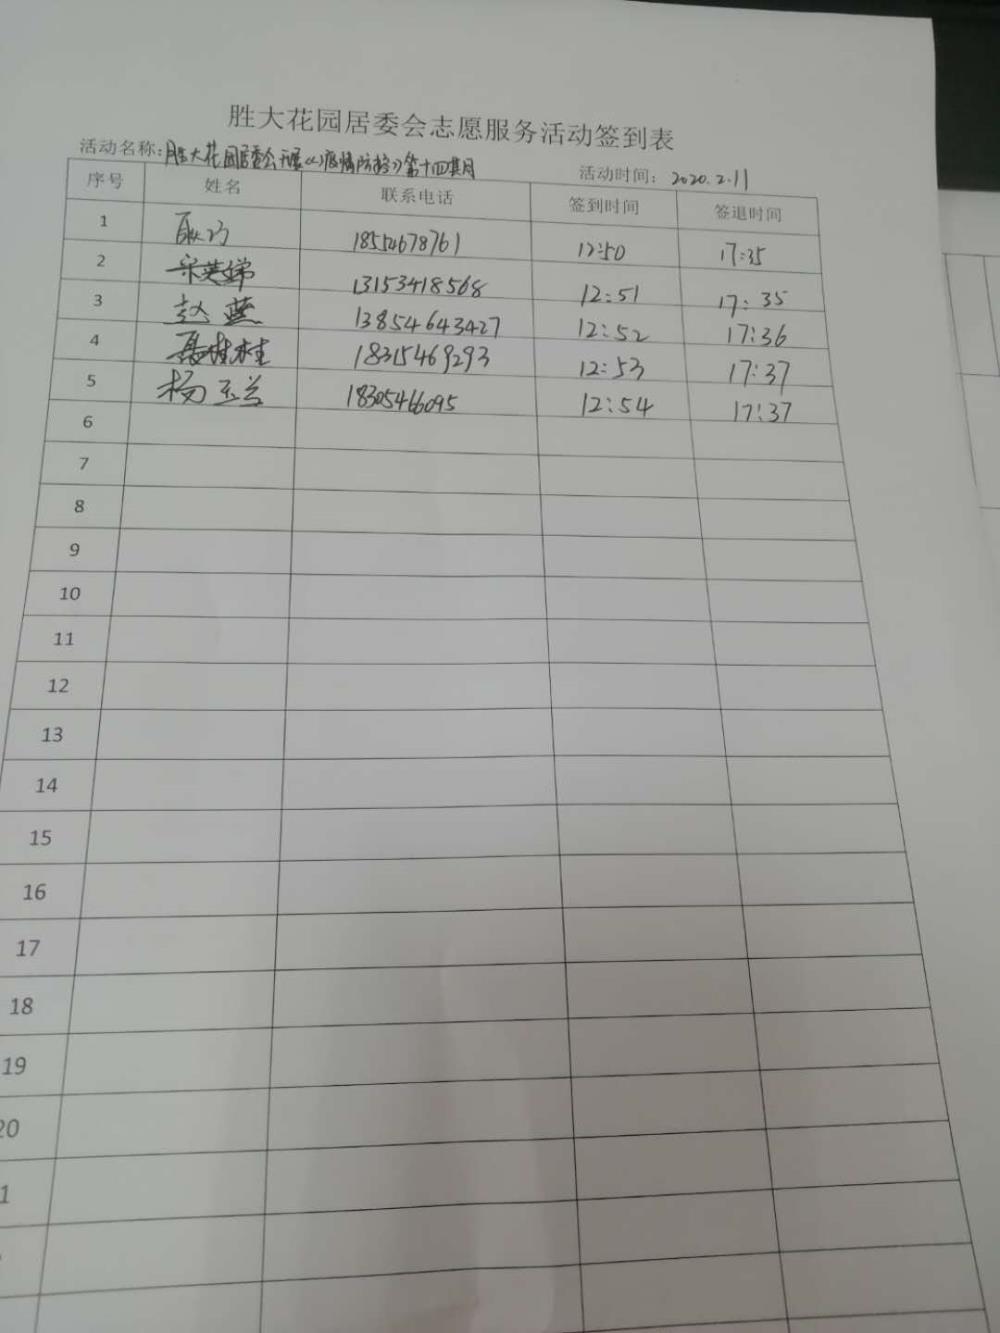 胜大花园居委会志愿服务活动签到表
活动名称：胜大花园居委会开展《《疫情防控》第十四期 活动时间： 2020.2.11
序号 姓名 联系电话 签到时间 签退时间
1 耿巧 18554678761 12:50 17:35
2 宋英娣 13153418568 12:51 17:35
3 赵燕 13854643427 12:52 17:36
4 聂桂桂 18315469293 12:53 17:37
5 杨玉兰 18305466095 12:54 17:37
6
7
8
9
10
11
12
13
14
15
16
17
18
19
20
1